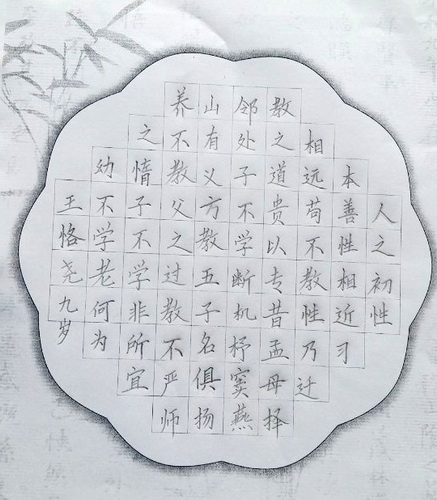 人之初性
本善性相近习
相远苟不教性乃迁
教之道贵以专昔孟母择
邻处子不学断机杼窦燕
山有义方教五子名俱扬
养不教父之过教不严师
之惰子不学非所宜
幼不学老何为
王恪尧九岁